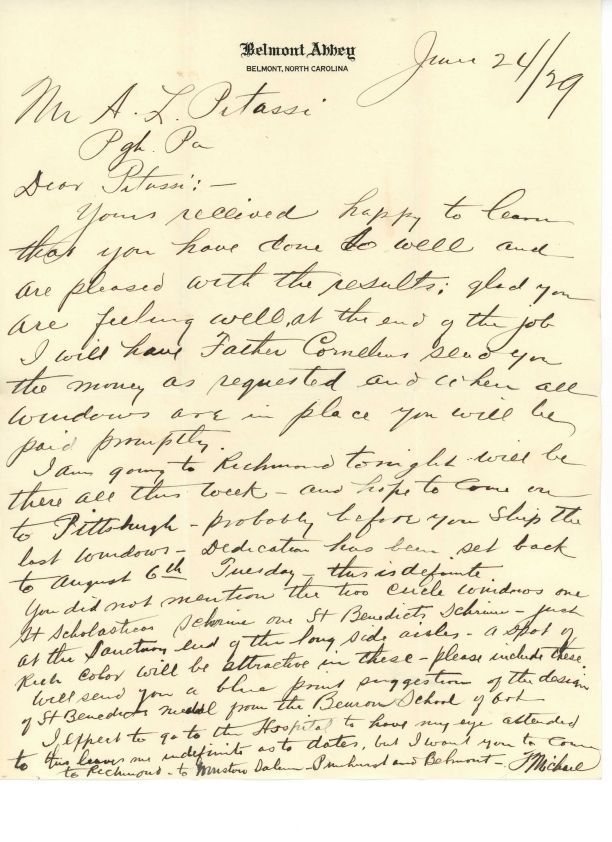 Belmont Abbey
BELMONT, NORTH CAROLINA
June 24/29
Mr A. L. Pitassi
Pgh. Pa
Dear Pitassi: —
Yours received happy to learn
that you have done so well and
are pleased with the results; glad you
are feeling well, at the end of the job
I will have Father Cornelius send you
the money as requested and when all
windows are in place you will be
paid promptly.
I am going to Richmond tonight will be
there all this week - and hope to come on
to Pittsburgh - probably before you ship the
last windows - Dedication has been set back
to August 6th Tuesday - this is definite
You did not mention the two circle windows one
St Scholasticas Schrine one St Benedicts Schrine - just
at the Sanctuary end of the long side aisles - a spot of
Rich color will be attractive in these - please include these.
Will send you a blue print suggestion of the design
of St Benedicts medal from the Beuron School of art
I expect to go to the Hospital to have my eye attended
to this leaves me indefinite as to dates, but I want you to come
to Richmond - to Winston Salem - Pinehurst and Belmont -
Michael